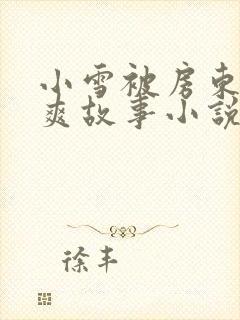 小雪被房东
爽故事小说
徐丰